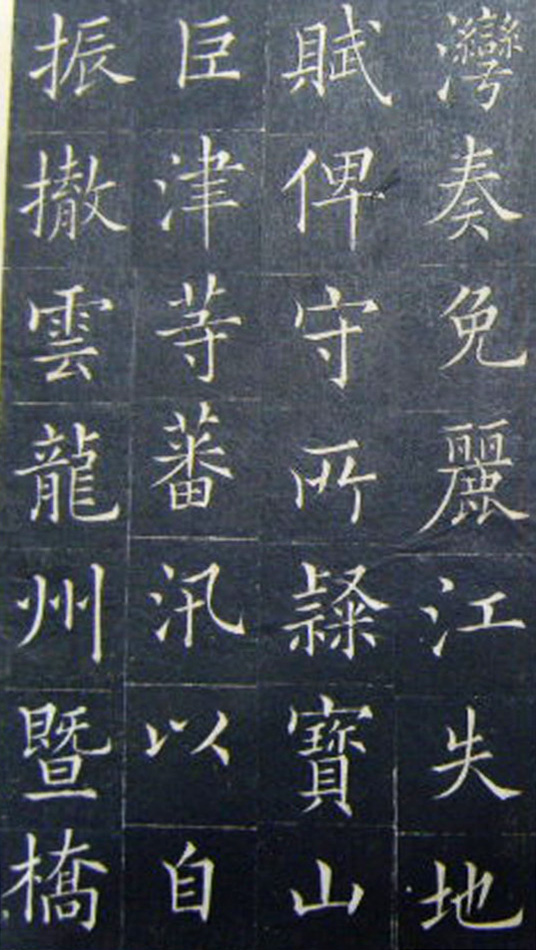 灣奏免麗江失地
賦俾守所隸寶山
臣津等蕃汛以自
振撤雲龍州暨橋